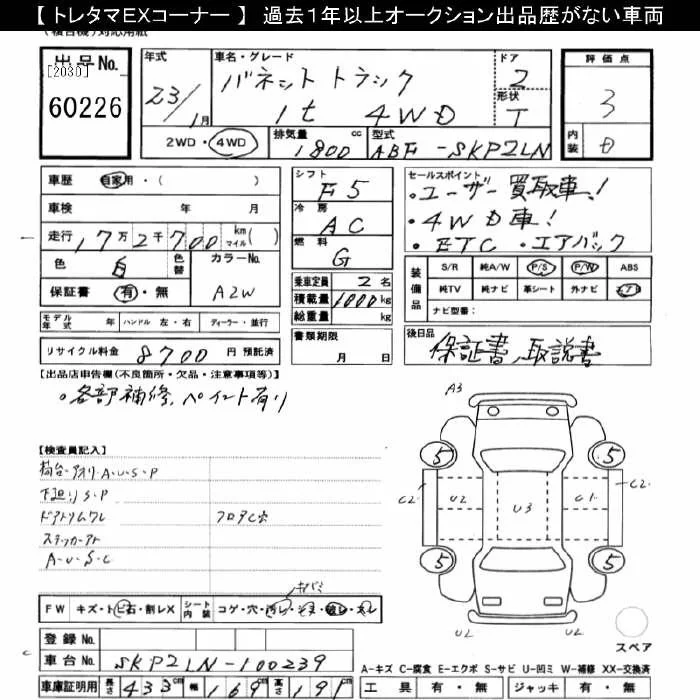 【 トレタマEXコーナー 】 過去1年以上オークション出品歴がない車両
出品No.
[2030]
60226
年式
23/1月
車名・グレード
バネットトラック
1t 4WD
ドア
2
形状
T
評価点
3
内装
D
2WD・4WD
排気量 1800 cc
型式 ABF-SKP2LN
車歴 自家用・( )
車検 年 月
走行 17万2千700 km マイル( )
色 白 色替 カラーNo.
保証書 有・無 A2W
モデル年式 年 ハンドル 左・右 ディーラー・並行
リサイクル料金 8700 円 預託済
シフト
F5
冷房
AC
燃料
G
乗車定員 2名
積載量 1000kg
総重量 kg
書類期限
月 日
セールスポイント
・ユーザー買取車!
・4WD車!
・ETC ・エアバック
装備品
S/R 純A/W P/S P/W ABS
純TV 純ナビ 革シート 外ナビ エアB
ナビ型番:
後日品
保証書、取説書
【出品店申告欄(不良箇所・欠品・注意事項等)】
・各部補修、ペイント有り
【検査員記入】
荷台・アオリ・A・U・S・P
下廻りS・P
ドアトリムワレ
フロアC穴
ステッカーアト
A・U・S・C
キバミ
FW キズ・トビ石・割レX シート内装 コゲ・穴・汚レ・スレ
登録No.
車台No. SKP2LN-100239
車庫証明用 長さ 433cm 幅 169cm 高さ 191cm
A3
5
5
C2
U2
U3
C1
C2
5
5
U2
U2
スペア
A-キズ C-腐食 E-エクボ S-サビ U-凹ミ W-補修 XX-交換済
工具 有・無 ジャッキ 有・無